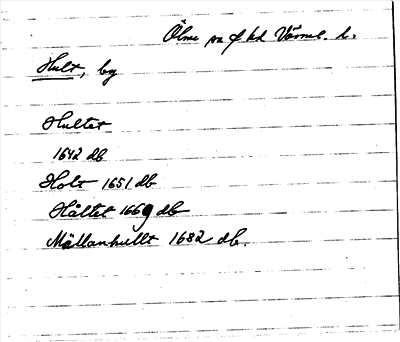 Ölme sn f kd Värml. l.
Hult, by
Hultet
1642 db
Holt 1651 db
Håltet 1669 db
Mällanhullt 1682 db.